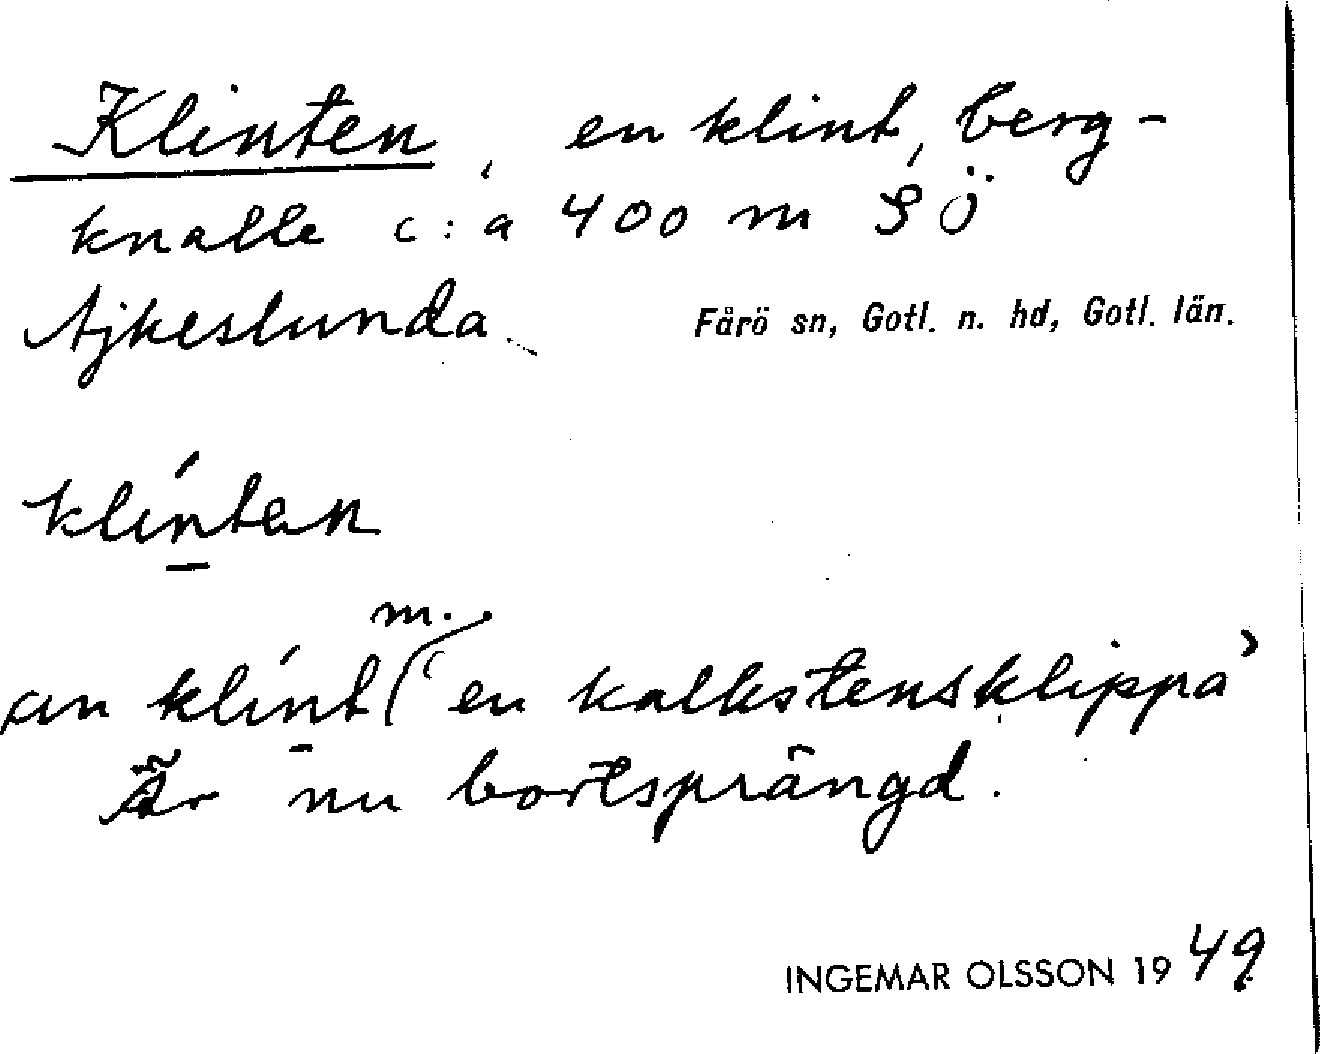 Klinten, en klint, berg-
knalle c:a 400 m SÖ
Ajkeslunda
Fårö sn, Gotl. n. hd, Gotl. län.
klíntæn
m.
æn klínt ('en kalkstensklippa'
Är nu bortsprängd.
INGEMAR OLSSON 1949